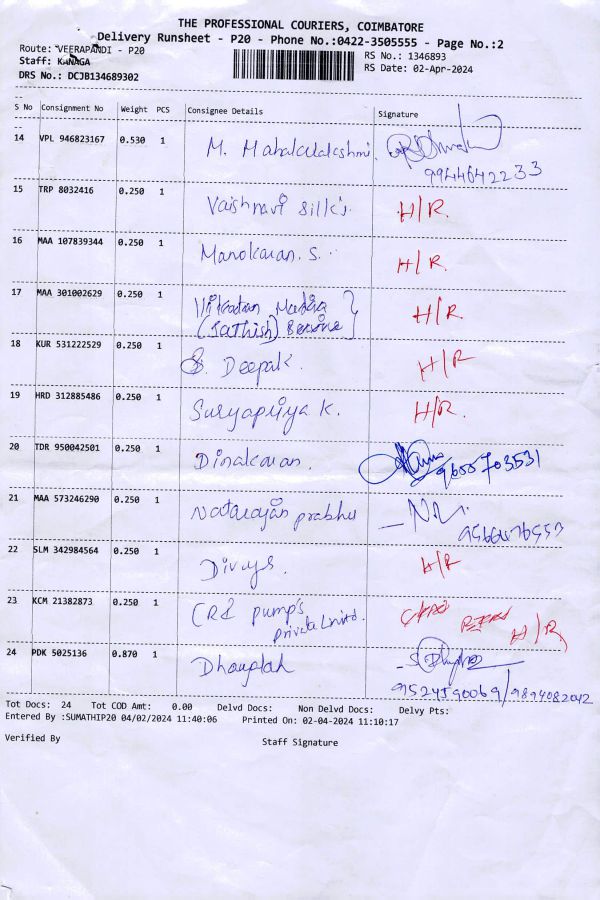 THE PROFESSIONAL COURIERS, COIMBATORE
Delivery Runsheet - P20 - Phone No.:0422-3505555 - Page No.:2
Route: VEERAPANDI - P20
RS No.: 1346893
Staff: KANAGA
RS Date: 02-Apr-2024
DRS No.: DCJB134689302
S No Consignment No Weight PCS Consignee Details Signature
14 VPL 946823167 0.530 1 M. Mahalalakshmi.
9944642233
15 TRP 8032416 0.250 1 Vaishnavi Silk's H/R.
16 MAA 107839344 0.250 1 Manokaran. S. H/R.
17 MAA 301002629 0.250 1 H/R.
(Sathish)
18 KUR 531222529 0.250 1 S. Deepak. H/R
19 HRD 312885486 0.250 1 Suryapriya K. H/R.
20 TDR 950042501 0.250 1 Dinakaran. 9655703531
21 MAA 573246290 0.250 1 Natarajan prabhu
22 SLM 342984564 0.250 1 H/R
23 KCM 21382873 0.250 1 CRI pump's
private Limitd. H/R
24 PDK 5025136 0.870 1
9524590069/9894082042
Tot Docs: 24 Tot COD Amt: 0.00 Delvd Docs: Non Delvd Docs: Delvy Pts:
Entered By :SUMATHIP20 04/02/2024 11:40:06 Printed On: 02-04-2024 11:10:17
Verified By Staff Signature